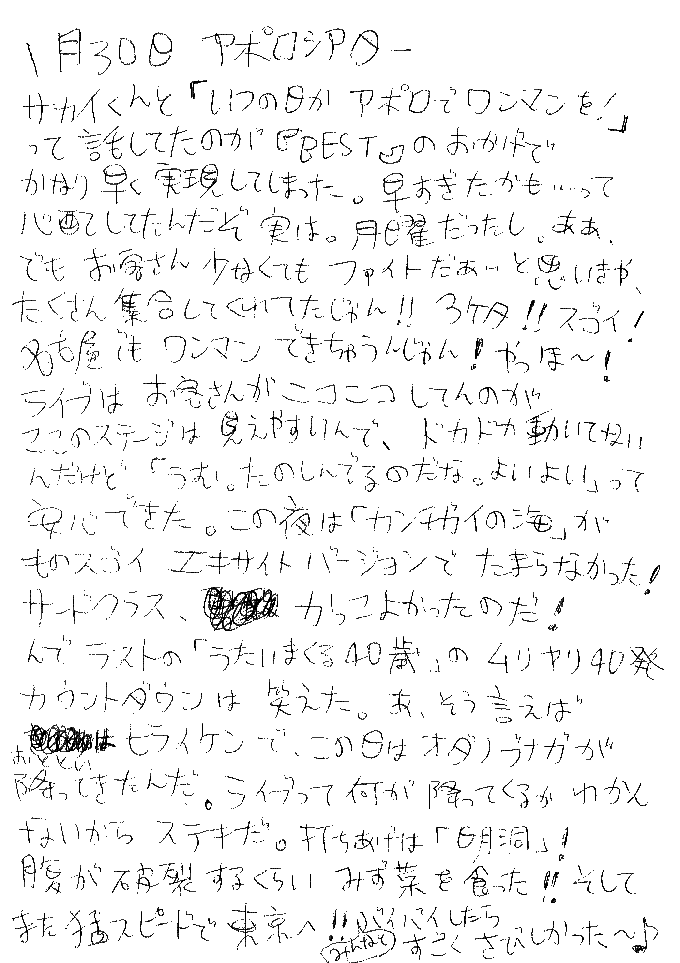 1月30日 アポロシアター
サカイくんと「いつの日か アポロでワンマンを!」
って話してたのが『BEST』のおかげで
かなり早く実現してしまった。早すぎたかも…って
心配してたんだぞ 実は。月曜だったし。ああ、
でも お客さん 少なくても ファイトだぁ…と思いきや、
たくさん集合してくれてたじゃん!! 3ケタ!! スゴイ!
名古屋でも ワンマン できちゃうんじゃん! やっほ〜!
ライブは お客さんが ニコニコ してんのが
ここのステージは 見えやすいんで、ドカドカ動いてない
んだけど 「うむ。たのしんでるのだな。よいよい」って
安心できた。この夜は「カンチガイの海」が
ものスゴイ エキサイトバージョンで たまらなかった!
サードクラス、かっこよかったのだ!
んで ラストの「うたいまくる40歳」の ムリヤリ40発
カウントダウンは 笑えた。あ、そう言えば
おとといは ヒライケンで、この日は オダノブナガが
降ってきたんだ。ライブって 何が 降ってくるか わかん
ないから ステキだ。打ちあげは「明洞」!
腹が 破裂するくらい みず菜を食った!! そして
また 猛スピードで 東京へ!! みんなと バイバイしたら
すごく さびしかった〜♪